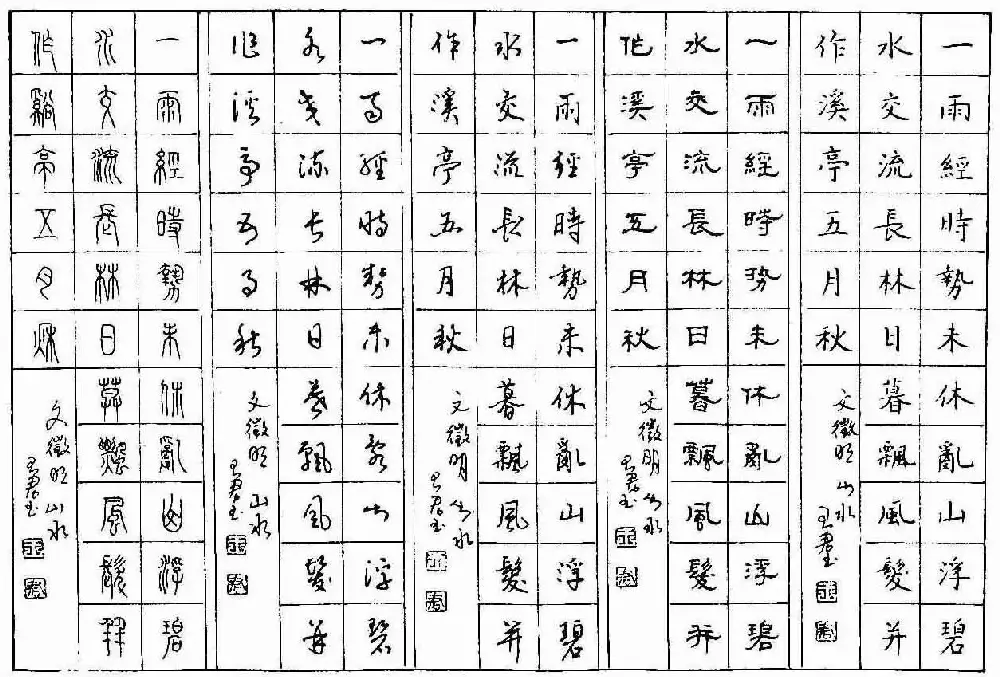 一雨經時勢未休亂山浮碧
水交流長林日暮飄風髮并
作溪亭五月秋
文徵明山水
一雨經時勢未休亂山浮碧
水交流長林日暮飄風髮并
作溪亭五月秋
文徵明山水
一雨經時勢未休亂山浮碧
水交流長林日暮飄風髮并
作溪亭五月秋
文徵明山水
一雨經時勢未休亂山浮碧
水交流長林日暮飄風髮并
作溪亭五月秋
文徵明山水
一雨經時勢未休亂山浮碧
水交流長林日暮飄風髮并
作溪亭五月秋
文徵明山水